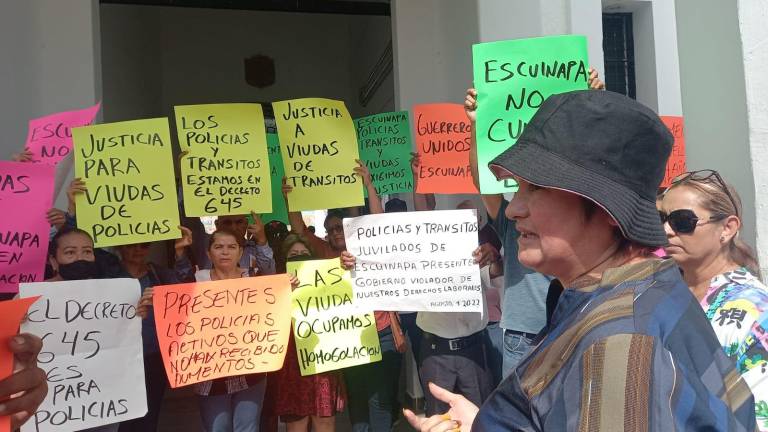 ESCUINAPA
JUSTICIA
PARA
VIUDAS
DE
POLICIAS
LOS
POLICIAS
Y
TRANSITOS
ESTAMOS EN
EL DECRETO
645
JUSTICIA
A
VIUDAS
DE
TRANSITOS
ESCUINAPA
POLICIAS
TRANSITOS
Y VIUDAS
EXIGIMOS
JUSTICIA
GUERREROS
UNIDOS
ESCUINAPA
ESCUINAPA
NO
POLICIAS Y TRANSITOS
JUVILADOS DE
ESCUINAPA PRESENTE
GOBIERNO VIOLADOR DE
NUESTROS DERECHOS LABORALES
AGOSTO, 1 2022
EL DECRETO
645
ES
PARA
POLICIAS
PRESENTES
LOS POLICIAS
ACTIVOS QUE
NO HAN RECIBIDO
AUMENTOS
LAS
VIUDA
OCUPAMOS
HOMOGOLACION